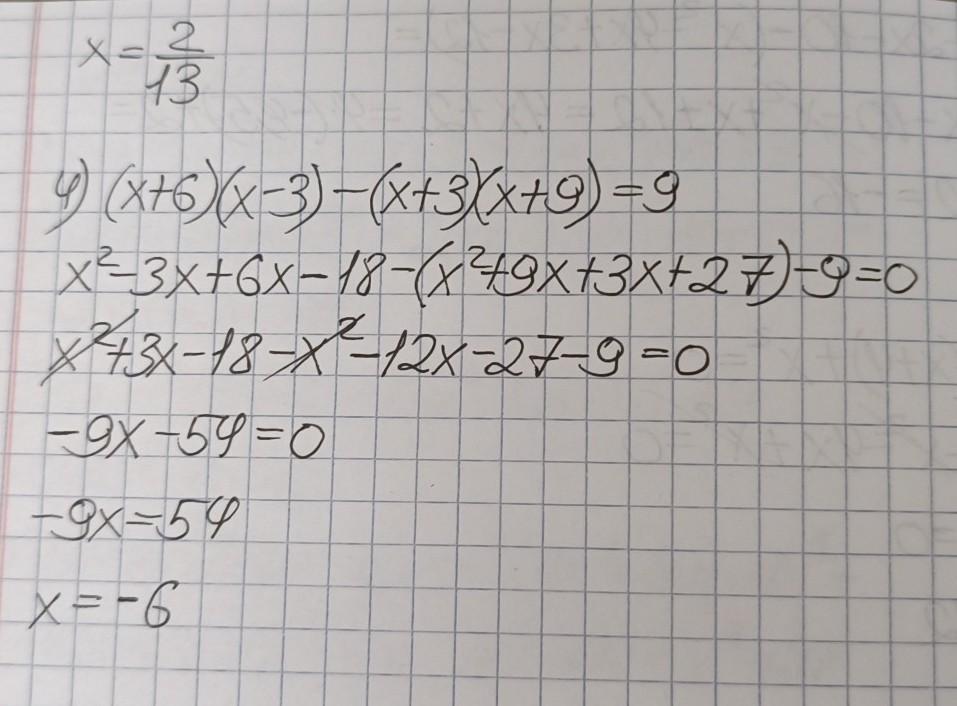 x = 2/13
4) (x+6)(x-3)-(x+3)(x+9)=9
x²-3x+6x-18-(x²+9x+3x+27)-9=0
x²+3x-18-x²-12x-27-9=0
-9x-54=0
-9x=54
x=-6